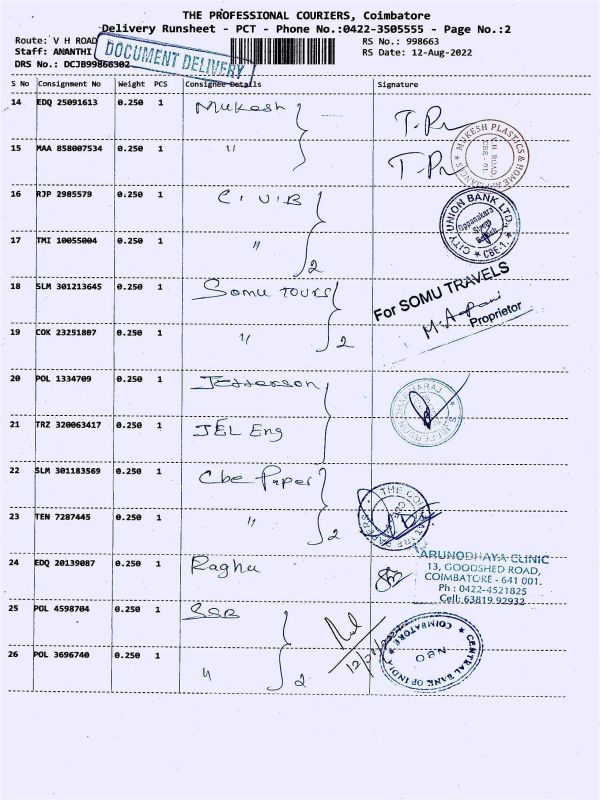 THE PROFESSIONAL COURIERS, Coimbatore
Delivery Runsheet - PCT - Phone No.:0422-3505555 - Page No.:2
Route: V H ROAD
RS No.: 998663
Staff: ANANTHI
RS Date: 12-Aug-2022
DOCUMENT DELIVERY
DRS No.: DCJB99866302
S No Consignment No Weight PCS Consignee Details Signature
14 EDQ 25091613 0.250 1 Mukesh
T.
MUKESH PLASTICS & HOME
V.H. ROAD,
CBE - 01.
15 MAA 858007534 0.250 1 "
T.
16 RJP 2985579 0.250 1 C.U.B
CITY UNION BANK LTD.,
Oppanakara
Street
Branch
CBE-1.
17 TMI 10055004 0.250 1 " 2
18 SLM 301213645 0.250 1 Somu Tours
For SOMU TRAVELS
Proprietor
19 COK 23251807 0.250 1 " 2
20 POL 1334709 0.250 1 Jefferson
21 TRZ 320063417 0.250 1 JEL Eng
22 SLM 301183569 0.250 1 Cbe Paper
THE
23 TEN 7287445 0.250 1 " 2
24 EDQ 20139087 0.250 1 Raghu
ARUNODHAYA CLINIC
13, GOODSHED ROAD,
COIMBATORE - 641 001.
Ph : 0422-4521825
Cell: 63819 92932
25 POL 4598704 0.250 1 SSB
CENTRAL BANK OF INDIA
COIMBATORE
NBO
26 POL 3696740 0.250 1 " 2